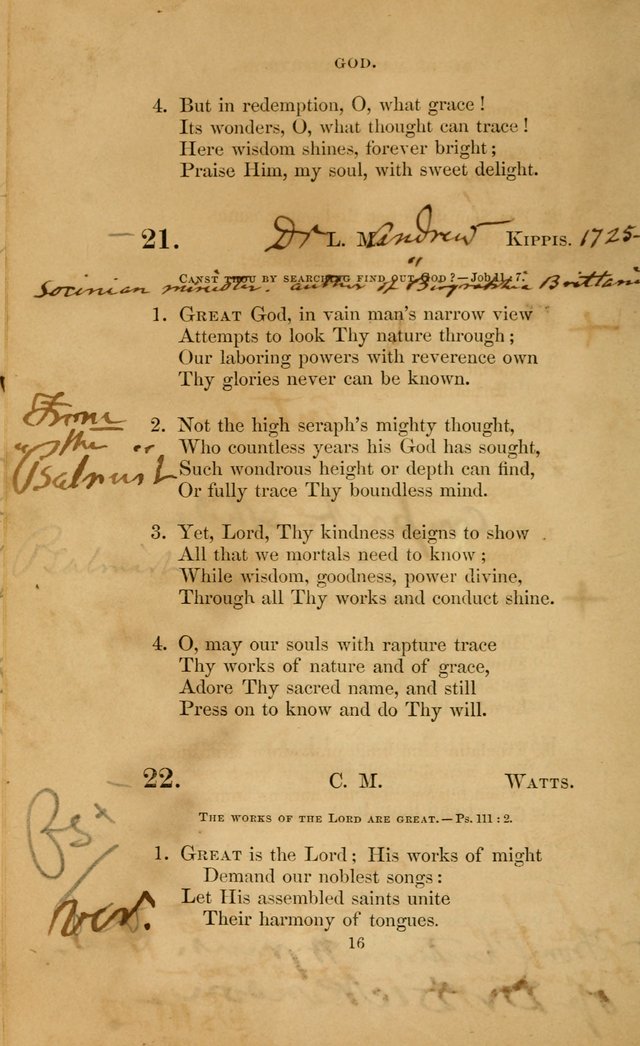 GOD.
4. But in redemption, O, what grace!
Its wonders, O, what thought can trace!
Here wisdom shines, forever bright;
Praise Him, my soul, with sweet delight.
21. Dr L. M. Andrew KIPPIS. 1725-
CANST THOU BY SEARCHING FIND OUT GOD?—Job 11:7.
Socinian minister. author of "Biographia Brittani
1. GREAT God, in vain man's narrow view
Attempts to look Thy nature through;
Our laboring powers with reverence own
Thy glories never can be known.
From
"the
Psalmist"
2. Not the high seraph's mighty thought,
Who countless years his God has sought,
Such wondrous height or depth can find,
Or fully trace Thy boundless mind.
Psalmist
3. Yet, Lord, Thy kindness deigns to show
All that we mortals need to know;
While wisdom, goodness, power divine,
Through all Thy works and conduct shine.
4. O, may our souls with rapture trace
Thy works of nature and of grace,
Adore Thy sacred name, and still
Press on to know and do Thy will.
22. C. M. WATTS.
THE WORKS OF THE LORD ARE GREAT.—Ps. 111:2.
Ps x
ver.
1. GREAT is the Lord; His works of might
Demand our noblest songs:
Let His assembled saints unite
Their harmony of tongues.
16